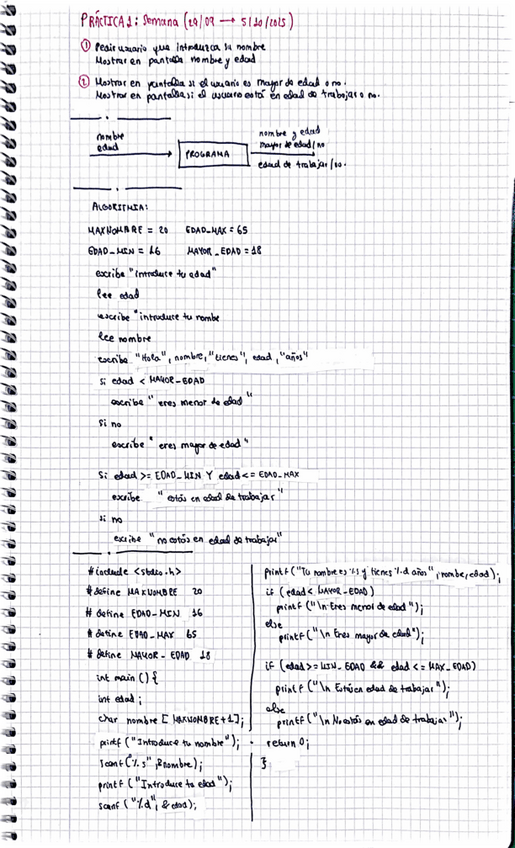 PRÁCTICA 1: Semana (29/09 → 5/10/2025)
① Pedir usuario que introduzca su nombre
Mostrar en pantalla nombre y edad
② Mostrar en pantalla si el usuario es mayor de edad o no.
Mostrar en pantalla si el usuario está en edad de trabajar o no.
nombre
edad
PROGRAMA
nombre y edad
mayor de edad/no
edad de trabajar/no.
ALGORITMIA:
MAXNOMBRE = 20 EDAD_MAX = 65
EDAD_MIN = 16 MAYOR_EDAD = 18
escribe "introduce tu edad"
lee edad
escribe "introduce tu nombe
lee nombre
escribe "Hola", nombre, "tienes", edad, "años"
si edad < MAYOR_EDAD
escribe "eres menor de edad"
si no
escribe "eres mayor de edad"
si edad >= EDAD_MIN Y edad <= EDAD_MAX
escribe "estás en edad de trabajar"
si no
escribe "no estás en edad de trabajar"
#include <stdio.h>
#define MAXNOMBRE 20
# define EDAD_MIN 16
# define EDAD_MAX 65
# define MAYOR_EDAD 18
int main () {
int edad;
char nombre [MAXNOMBRE+1];
printf ("Introduce tu nombre");
scanf ("%s", &nombre);
printf ("Introduce tu edad");
scanf ("%d", &edad);
printf ("Tu nombre es %s y tienes %d años", nombre, edad);
if (edad < MAYOR_EDAD)
printf ("\n Eres menor de edad");
else
printf ("\n Eres mayor de edad");
if (edad >= MIN_EDAD && edad <= MAX_EDAD)
printf ("\n Estás en edad de trabajar");
else
printf ("\n No estás en edad de trabajar");
return 0;
}